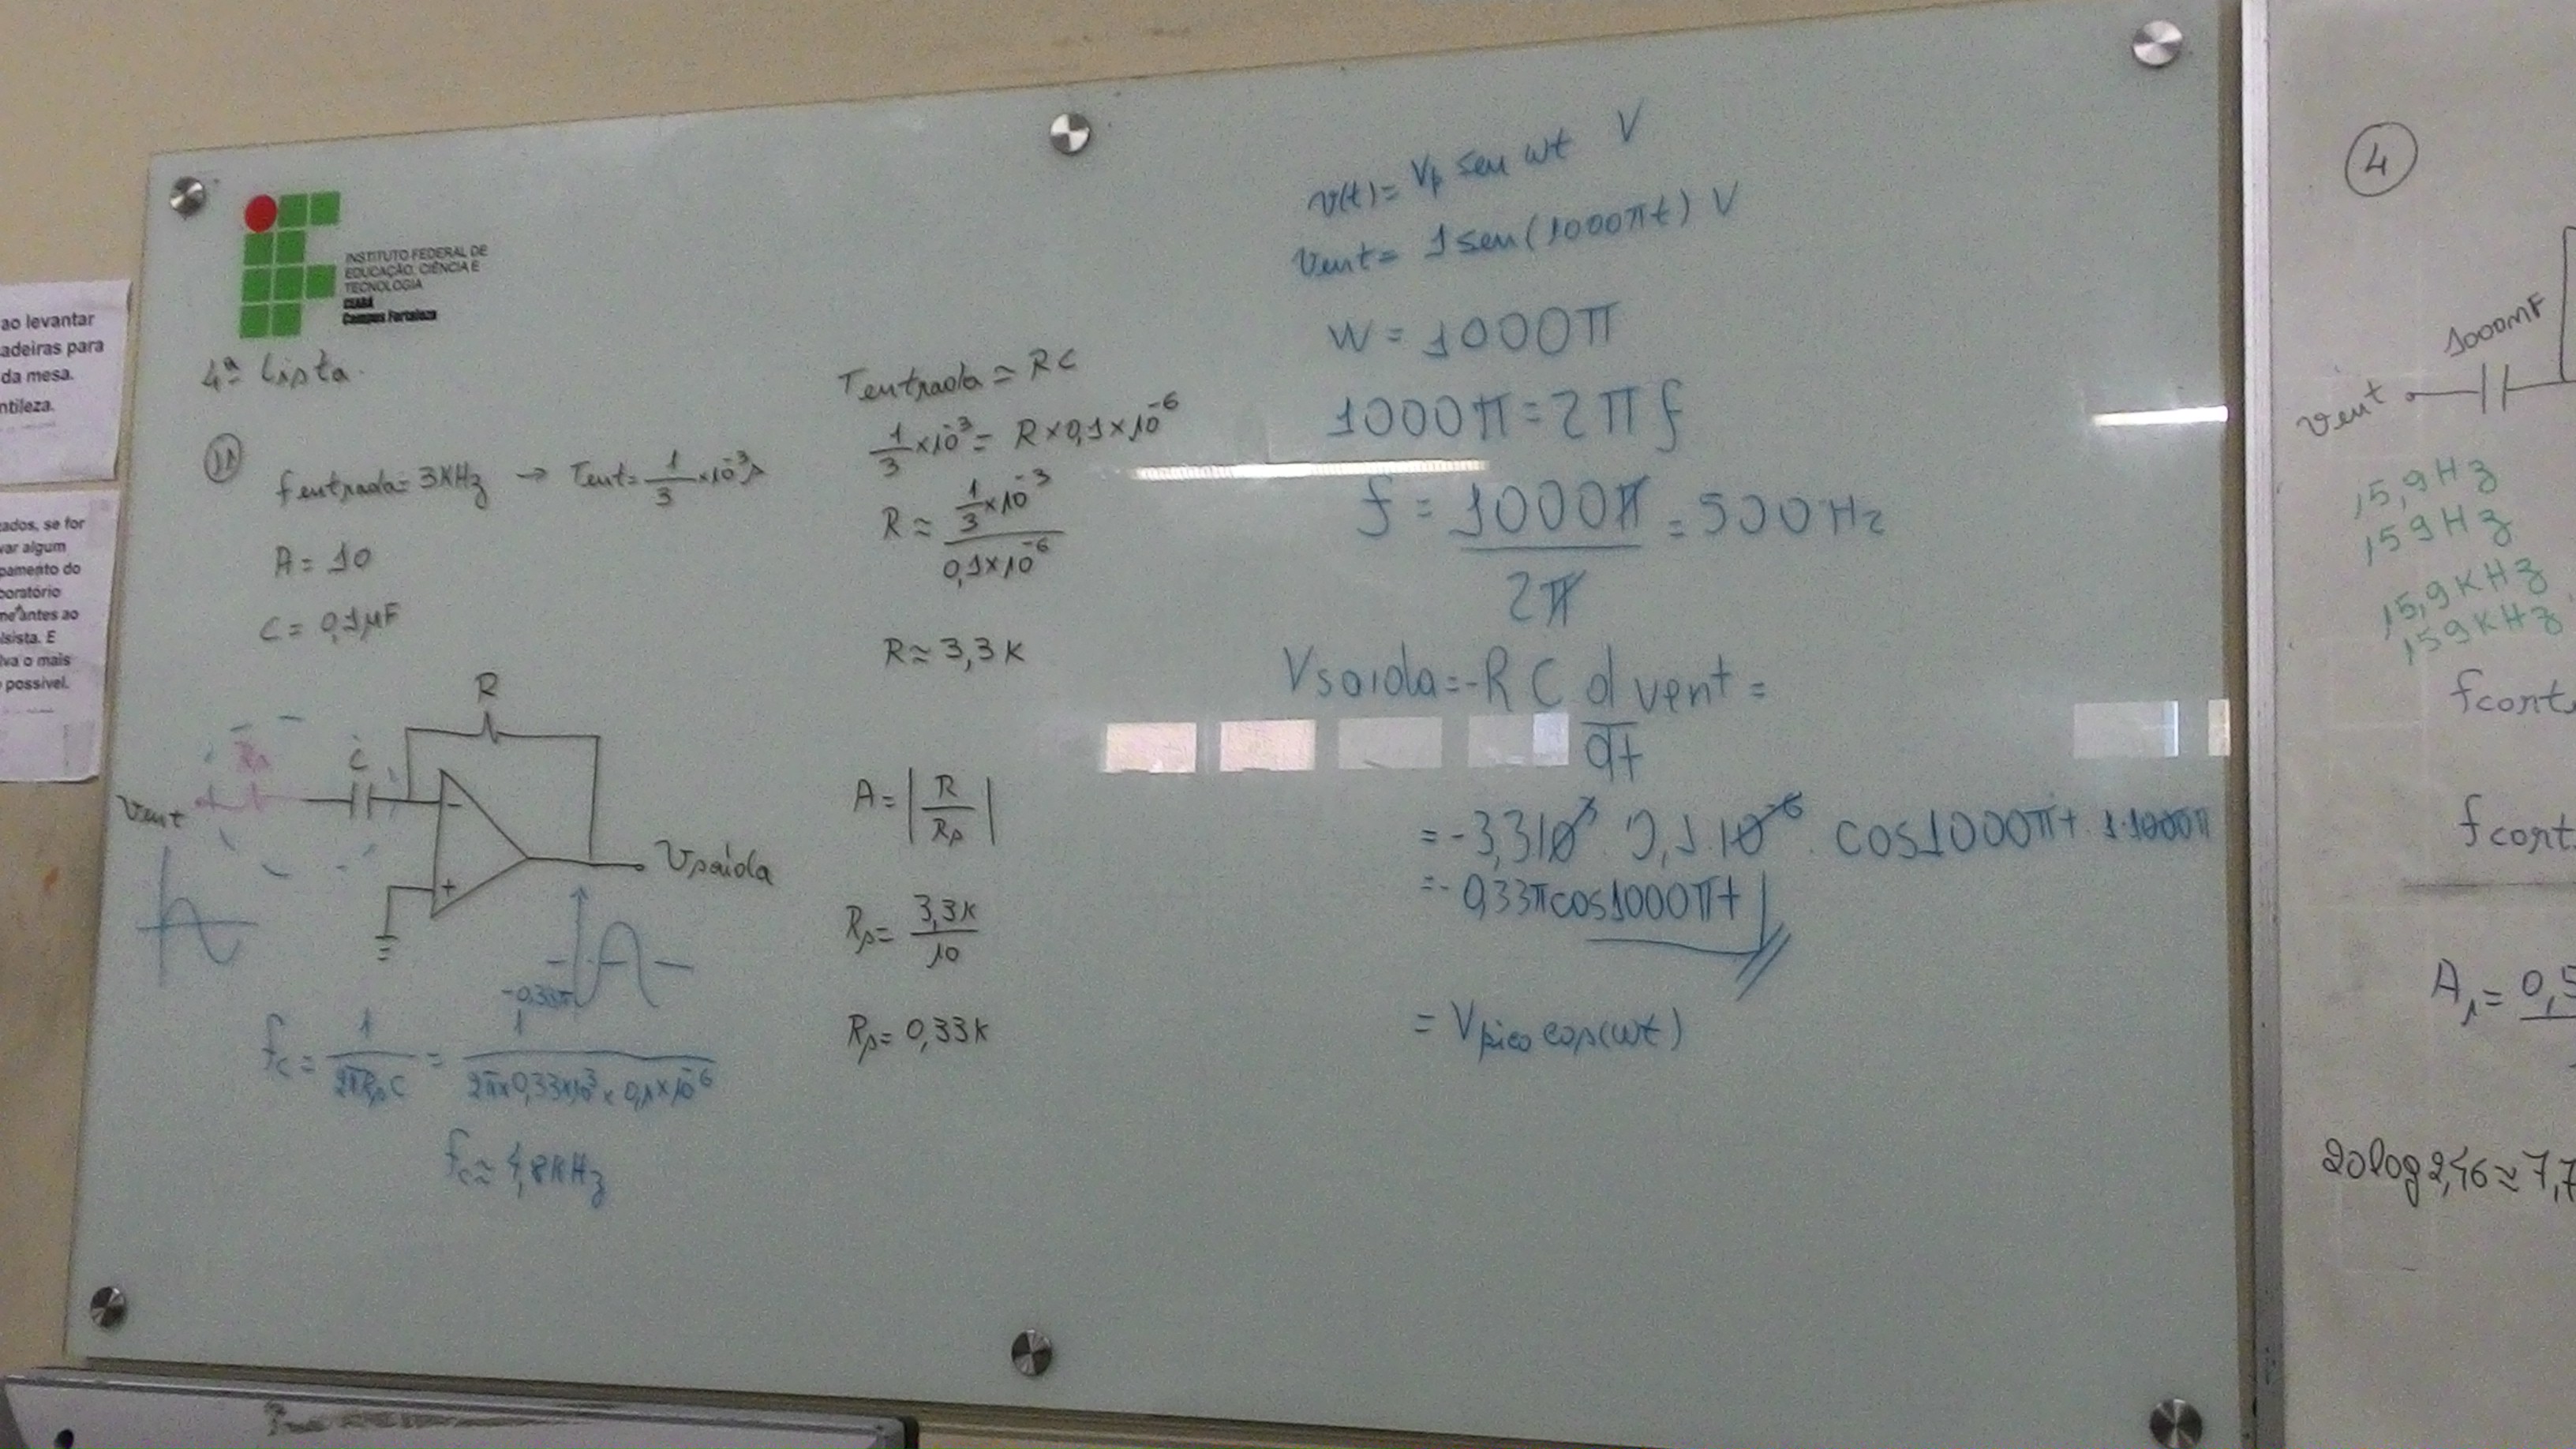 ao levantar
adeiras para
da mesa.
ntileza.
ados, se for
var algum
pamento do
boratório
me antes ao
lsista. E
lva o mais
possível.
INSTITUTO FEDERAL DE
EDUCAÇÃO, CIÊNCIA E
TECNOLOGIA
CEARÁ
Campus Fortaleza
4ª Lista
fentrada = 3KHz → Tent = 1/3 ×10⁻³s
A = 10
C = 0,1μF
R
Rs
C
Vent
-
+
Vsaída
-0,33π
fc = 1/2πRsC = 1/2π×0,33×10³×0,1×10⁻⁶
fc ≈ 4,8KHz
Tentrada ≈ RC
1/3 ×10⁻³ = R×0,1×10⁻⁶
R ≈ 1/3 ×10⁻³ / 0,1×10⁻⁶
R ≈ 3,3K
A = |R/Rs|
Rs = 3,3K/10
Rs = 0,33K
v(t) = Vp sen wt V
Vent = 1 sen(1000πt) V
W = 1000π
1000π = 2πf
f = 1000π/2π = 500Hz
Vsaida = -RC d vent/dt =
= -3,3 10³. 0,1.10⁻⁶. cos1000πt. 1.1000π
= - 0,33πcos1000πt
= Vpico cos(wt)
4
1000nF
Vent
15,9Hz
159Hz
15,9KHz
159KHz
fcort
fcort
A₁ = 0,5
20log2,46 ≈ 7,7